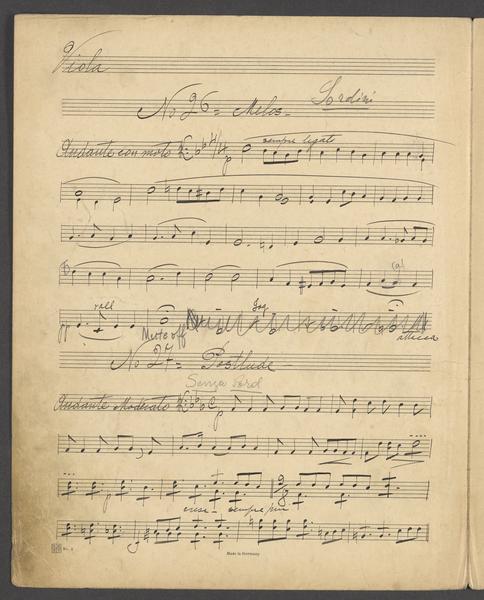 Viola
No 26 = Melos -
Sordini
Andante con moto
p
sempre legato
(a)
pp
rall
Mute off
attacca
No 27 = Postlude
Senza sord
Andante Moderato
p
9
8
p
cresc - sempre piu
No. 2
Made in Germany